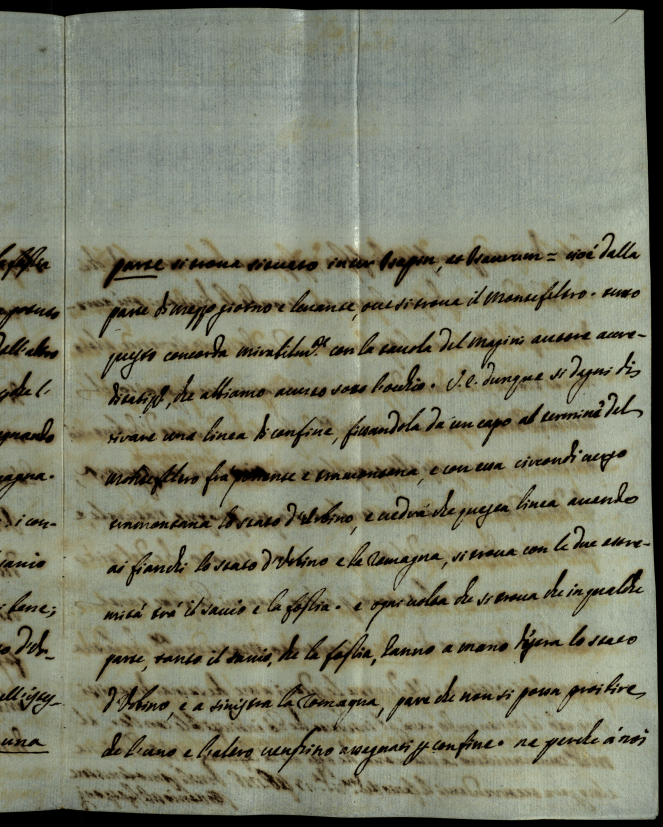 parte si trova situato inter Isapin, et Isaurum = cioè dalla
parte di mezzo giorno e levante, ove si trova il Montefeltro. tutto
questo concorda mirabilm.te con la tavola del Magini autore accre-
ditatiss.o, che abbiamo avuto sotto l'occhio. S. E. dunque si degni di
tirare una linea di confine, fissandola da un capo al termine del
Montefeltro fra ponente e tramontana, e con essa circondi verso
tramontana lo stato d'Urbino, e vedrà che questa linea avendo
ai fianchi lo stato d'Urbino e la Romagna, si trova con le due estre-
mità trà il savio e la foglia. e ogni volta che si trova che in qualche
parte, tanto il savio, che la foglia, hanno a mano destra lo stato
d'Urbino, e a sinistra la Romagna, pare che non si possa proibire,
che l'uno e l'altro venghino assegnati p confine. ne perche à noi
la foglia
dall'altro
che l'
magna.
i con-
savio
bene;
d'Ur-
una